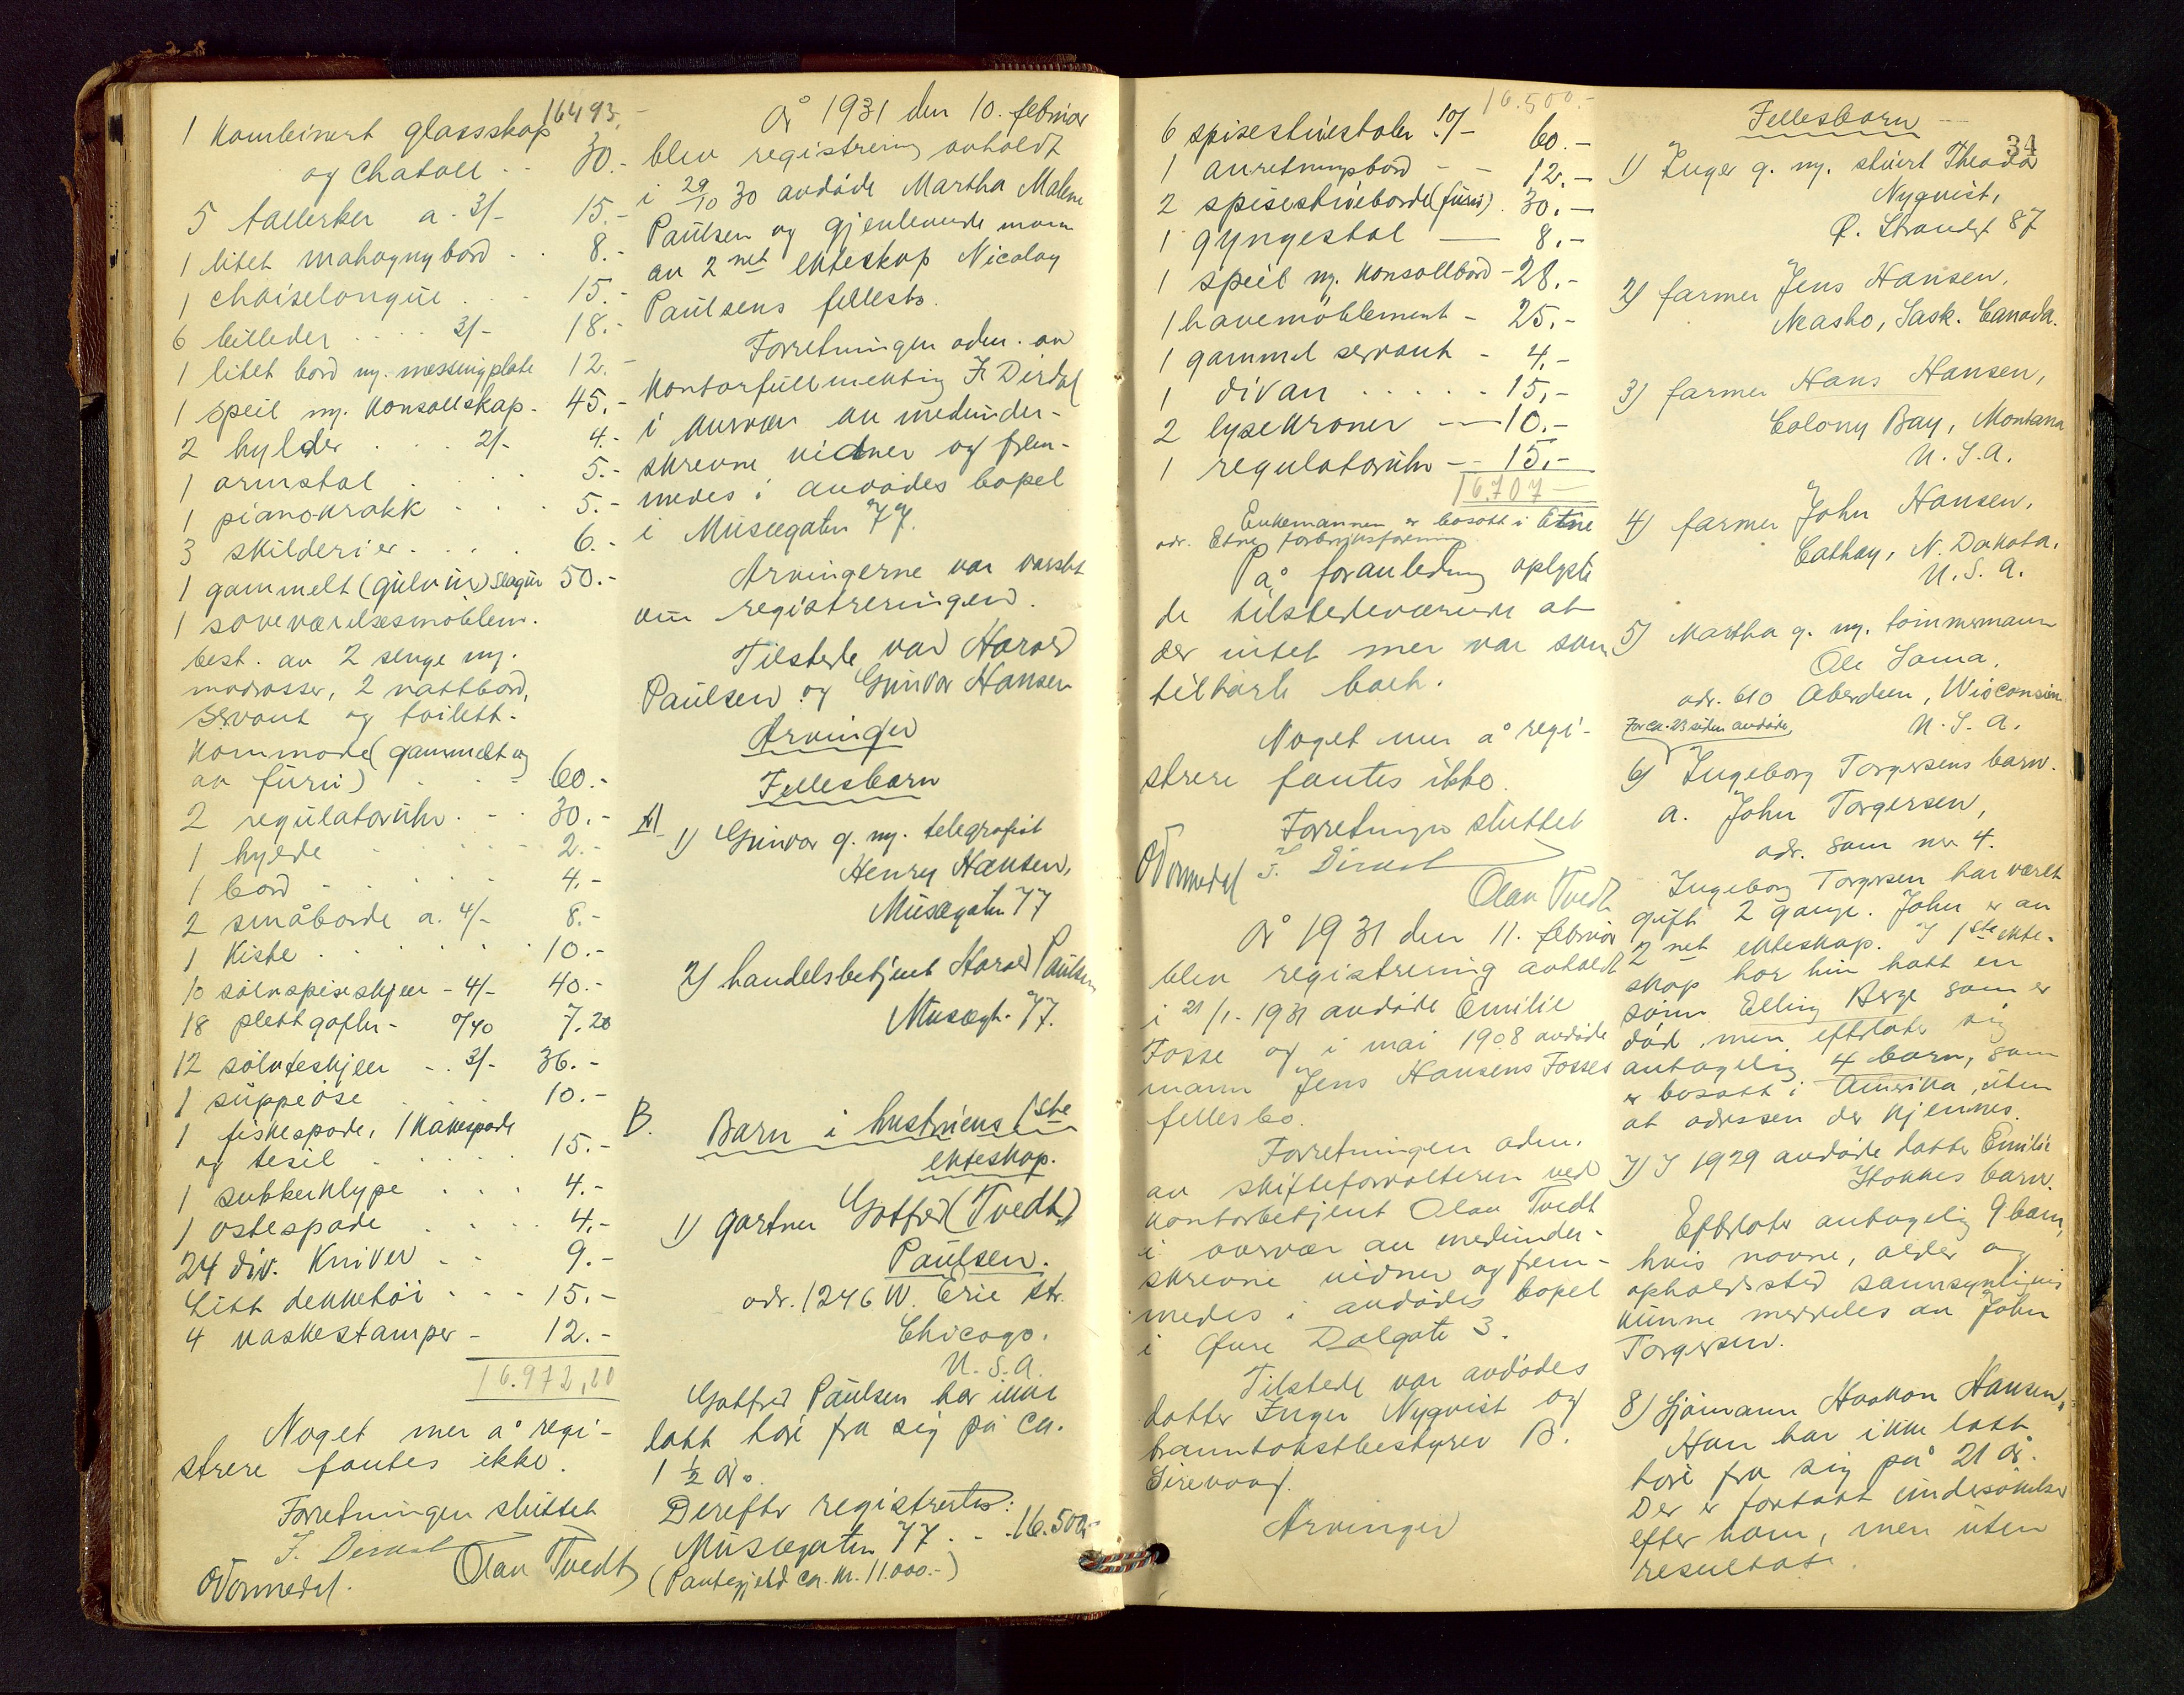 16493.-
1 Kombinert glasskap
og Chatoll . . 30.-
5 tallerker a. 3/- 15.-
1 litet mahognybord . . 8.-
1 chaiselongue . . . 15.-
6 billeder . . . 3/- 18.-
1 litet bord m. messingplate 12.-
1 speil m. Konsollskap. 45.-
2 hylder . . . 2/- 4.-
1 armstol . . . . 5.-
1 pianokrakk . . . 5.-
3 skilderier . . . . 6.-
1 gammelt (gulvur) slagur 50.-
1 soveværelsesmøblem.
best. av 2 senge m.
madrasser, 2 nattbord,
servant og toilett-
kommode (gammelt og
av furu) . . . 60.-
2 regulatoruhr . . . 30.-
1 hylde . . . . . 2.-
1 bord . . . . . 4.-
2 småborde a. 4/- 8.-
1 Kiste . . . . . 10.-
10 sølvspiseskjeer - 4/- 40.-
18 plettgafler - 0/40 7.20
12 sølvteskjeer - . 3/- 36.-
1 suppeøse . . . 10.-
1 fiskespade, 1 kakespade
og tesil . . . . . 15.-
1 sukkerklype . . . 4.-
1 ostespade . . . . 4.-
24 div. Kniver . . 9.-
Litt dekketøi . . . 15.-
4 vaskestamper - 12.-
16.972,20
Noget mer å regi-
strere fantes ikke.
Forretningen sluttet
F. Dirdal
O Vormedal. Olav Tvedt
År 1931 den 10. februar
blev registrering avholdt
i 29/10 30 avdøde Martha Malene
Paulsen og gjenlevende mann
av 2net ekteskap Nicolay
Paulsens fellesbo.
Forretningen adm. av
kontorfullmektig F. Dirdal
i overvær av medunder-
skrevne vidner og frem-
medes i avdødes bopel
i Museegaten 77.
Arvingerne var varslet
om registreringen.
Tilstede var Harald
Paulsen og Gunvor Hansen
Arvinger
Fellesbarn
A
1) Gunvor g. m. telegrafist
Henry Hansen,
Museegaten 77
2) handelsbetjent Harald Paulsen
Museegt. 77.
B. Barn i hustruens 1ste
ekteskap.
1) gartner Gotfred (Tvedt)
Paulsen.
adr. 1246 W. Erie str.
Chicago.
U.S.A.
Gotfred Paulsen har ikke
latt høre fra sig på ca.
1 ½ år.
Derefter registrertes:
Museegaten 77 . . . 16.500.-
(Pantegjeld ca. kr. 11.000.-)
16.500.-
6 spisestuestoler 10/- 60.-
1 anretningsbord - - 12.-
2 spisestueborde (furu) . 30.-
1 gyngestol — 8.-
1 speil m. konsollbord - 28.-
1 havemøblement - 25.-
1 gammel servant - 4.-
1 divan . . . . . 15.-
2 lysekroner — 10.-
1 regulatoruhr - - 15.-
16.707 —
Enkemannen er bosatt i Etne
adr. Etne forbruksforening
På foranledning oplyste
de tilstedeværende at
der intet mer var som
tilhørte boet.
Noget mer å regi-
strere fantes ikke.
Forretningen sluttet
O Vormedal F. Dirdal
Olav Tvedt
År 1931 den 11. februar
blev registrering avholdt
i 21/1- 1931 avdøde Emilie
Fosse og i mai 1908 avdøde
mann Jens Hansens Fosses
fellesbo.
Forretningen adm.
av skifteforvalteren ved
kontorbetjent Olav Tvedt
i overvær av medunder-
skrevne vidner og frem-
medes i avdødes bopel
i Øvre Dalgate 3.
Tilstede var avdødes
datter Inger Nyqvist og
branntakstbestyrer B.
Sirevaag.
Arvinger
Fellesbarn
34
1) Inger g. m. stuert Theodor
Nyqvist,
Ø. Strandgt 87
2) farmer Jens Hansen,
Neasho, Sask. Canada.
3) farmer Hans Hansen,
Colony Bay, Montana
U.S.A.
4) farmer John Hansen,
Cathay, N. Dakota.
U.S.A.
5) Martha g. m. tømmermann
Ole Soma,
adr. 610 Aberdeen, Wisconsin
U.S.A.
For ca. 23 siden avdøde,
6) Ingeborg Torgersens barn.
a. John Torgersen,
adr. som nr 4.
Ingeborg Torgersen har været
gift 2 gange. John er av
2net ekteskap. I 1ste ekte-
skap har hun hatt en
sønn Elling Berge som er
død, men efterlater sig
antagelig 4 barn, som
er bosatt i Amerika, uten
at adressen der kjennes.
7) I 1929 avdøde datter Emilie
Stokkes barn.
Efterlater antagelig 9 barn,
hvis navne, alder og
opholdssted sannsynligvis
kunne meddeles av John
Torgersen.
8) Sjømann Haakon Hansen,
Han har ikke latt
høre fra sig på 21 år.
Der er foretatt undersøkelser
efter ham, men uten
resultat.